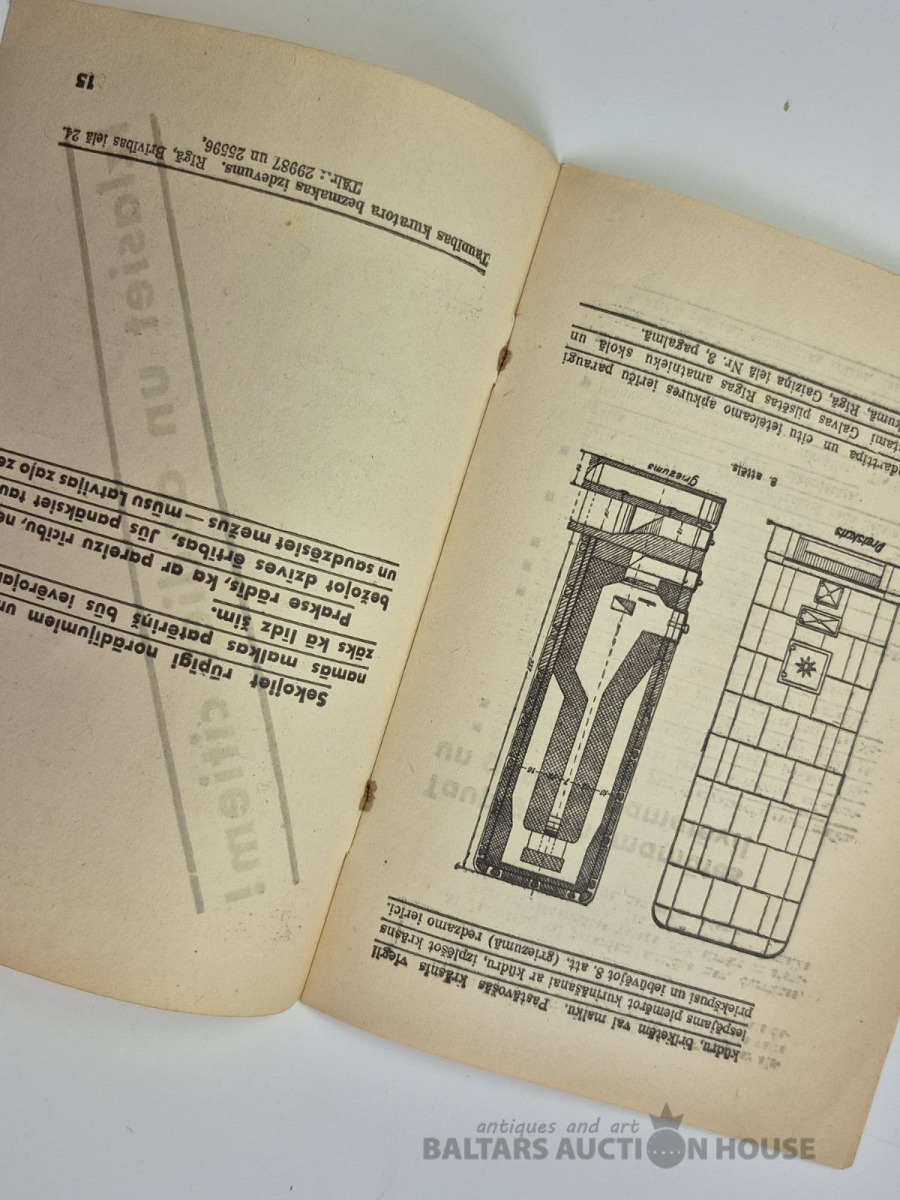 kūdru, briketēm vai malku. Pastāvošās krāsnis viegli
iespējams piemērot kurināšanai ar kūdru, izplēšot krāsns
priekšpusi un iebūvējot 8. att. (griezumā) redzamo ierīci.
Pretskats
Griezums
8. attēls.
ndarttipa un citu ieteicamo apkures ierīču paraugi
tami Galvas pilsētas Rīgas amatnieku skolā un
kumā, Rīgā, Gaiziņa ielā Nr. 3, pagalmā.
Sekojiet rūpīgi norādījumiem un
namās malkas patēriņš būs ievēroja
zāks kā līdz šim.
Prakse rādīs, ka ar pareizu rīcību, ne
bežojot dzīves ērtības, Jūs panāksiet tau
un saudzēsiet mežus — mūsu Latvijas zaļo ze
Taupības kuratora bezmakas izdevums. Rīgā, Brīvības ielā 24.
Tālr.: 29987 un 25596.
15
antiques and art
BALTARS AUCTION HOUSE